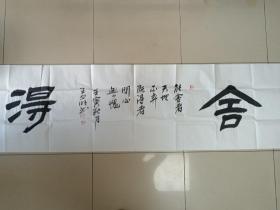 舍
能舍者
天地
不弃
既得者
问心
无愧
壬寅秋月
得